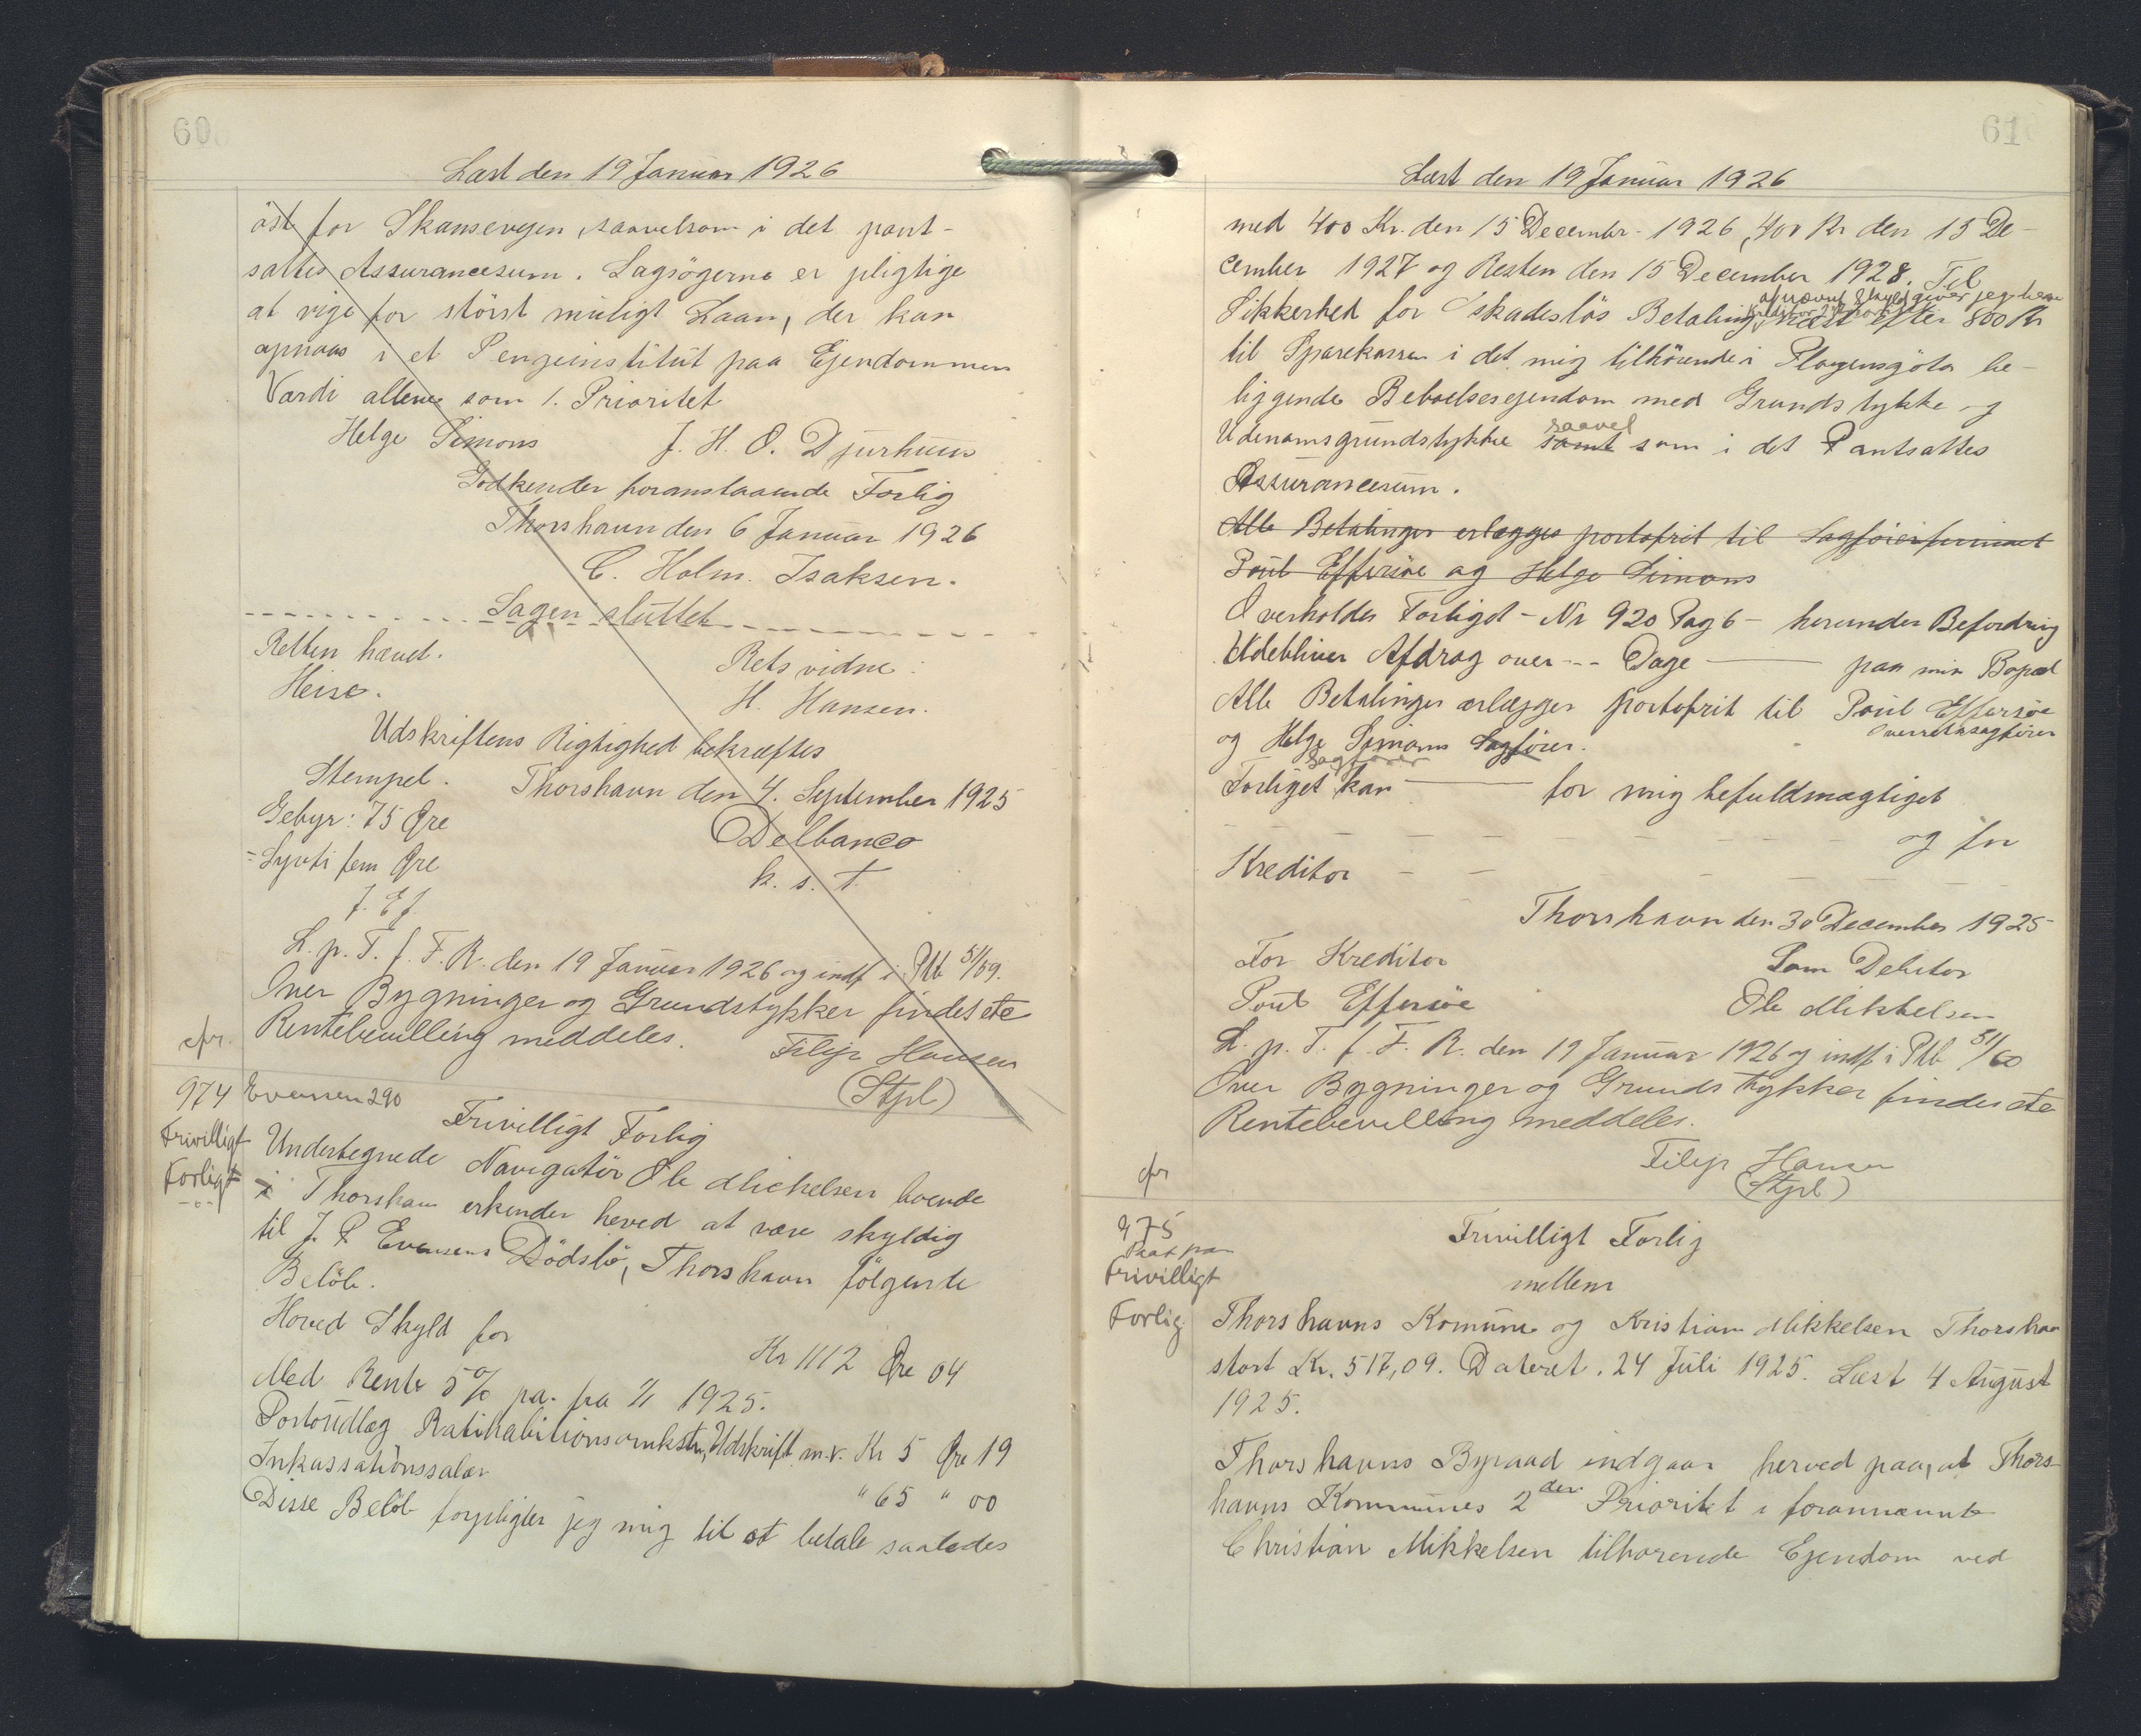 60
Læst den 19 Januar 1926
öst for Skansevejen, saavelsom i det pant-
sattes Assurancesum. Sagsögerne er pligtige
at vige for störst muligt Laan, der kan
opnaas i et Pengeinstitut paa Ejendommens
Værdi allene som 1. Prioritet
Helge Simons J. H. O. Djurhuus
Godkender foranstaaende Forlig
Thorshavn den 6 Januar 1926
C. Holm. Isaksen.
Sagen sluttet
Retten hævet. Rets vidne:
Heise. H. Hansen.
Udskriftens Rigtighed bekræftes
Stempel. Thorshavn den 4. September 1925
Gebyr: 75 Øre Delbanco
=Syvti fem Øre k. s. t.
J. Ef
L. p. T. f. F. R. den 19 Januar 1926 og indf i Ptb 51/59.
Over Bygninger og Grundstykker findes etc
cfr. Rentebevilling meddeles. Filip Hansen
(Stpl)
974 Evensen 290
Frivilligt Forlig
Frivilligt
Forligt
Undertegnede Navigatör Ole Mickelsen boende
i Thorshavn erkender herved at være skyldig
til J. P Evensens Dödsbo, Thorshavn fölgende
Belöb.
Hoved Skyld for Kr 1112 Øre 04
Med Rente 5% pa. fra 1/1 1925.
Portoudlæg Ratihabitionsomkstn, Udskrift m.v. Kr 5 Øre 19
Inkassationssalær " 65 " 00
Disse Belöb forpligter jeg mig til at betale saaledes
61
Læst den 19 Januar 1926
med 400 Kr. den 15 Decembr. 1926, 400 Kr den 15 De-
cember 1927 og Resten den 15 December 1928. Til
af nævnt Skyld giver jeg herv
Sikkerhed for skadeslös Betaling, næst efter 800 Kr
til Sparekassen i det mig tilhörende i be-
liggende Beboelsesejendom med Grundstykke og
saavel
Udenomsgrundstykke samt som i det Pantsattes
Assurancesum.
Alle Betalinger erlægges portofrit til Sagförerfirmaet
Poul Effersöe og Helge Simons
Overholdes Forliget - Nr 920 Pag 6 - herunder Befordring
Udebliver Afdrag over --- Dage — paa min Bopæl
Alle Betalinger erlægges portofrit til Poul Effersöe
Overretssagförer
og Helge Simons Sagförer.
Sagförer
Forliget kan — for mig befuldmægtiget
og for
Kreditor
Thorshavn den 30 December 1925
For Kreditor Som Debitor
Poul Effersöe Ole Mikkelsen
L. p. T. f. F. R. den 19 Januar 1926 og indf i Ptb 51/60
Over Bygninger og Grundstykker findes etc
Rentebevilling meddeles.
Filip Hansen
cfr (Stpl)
975 Frivilligt Forlig
Paat. paa
Frivilligt mellem
Forlig. Thorshavns Komune og Kristian Mikkelsen Thorshavn
stort Kr. 517,09. Dateret. 24 Juli 1925. Læst 4 August
1925.
Thorshavns Byraad indgaar herved paa, at Thors-
havns Kommunes 2den Prioritet i forannævnte
Christian Mikkelsen tilhorende Ejendom ved